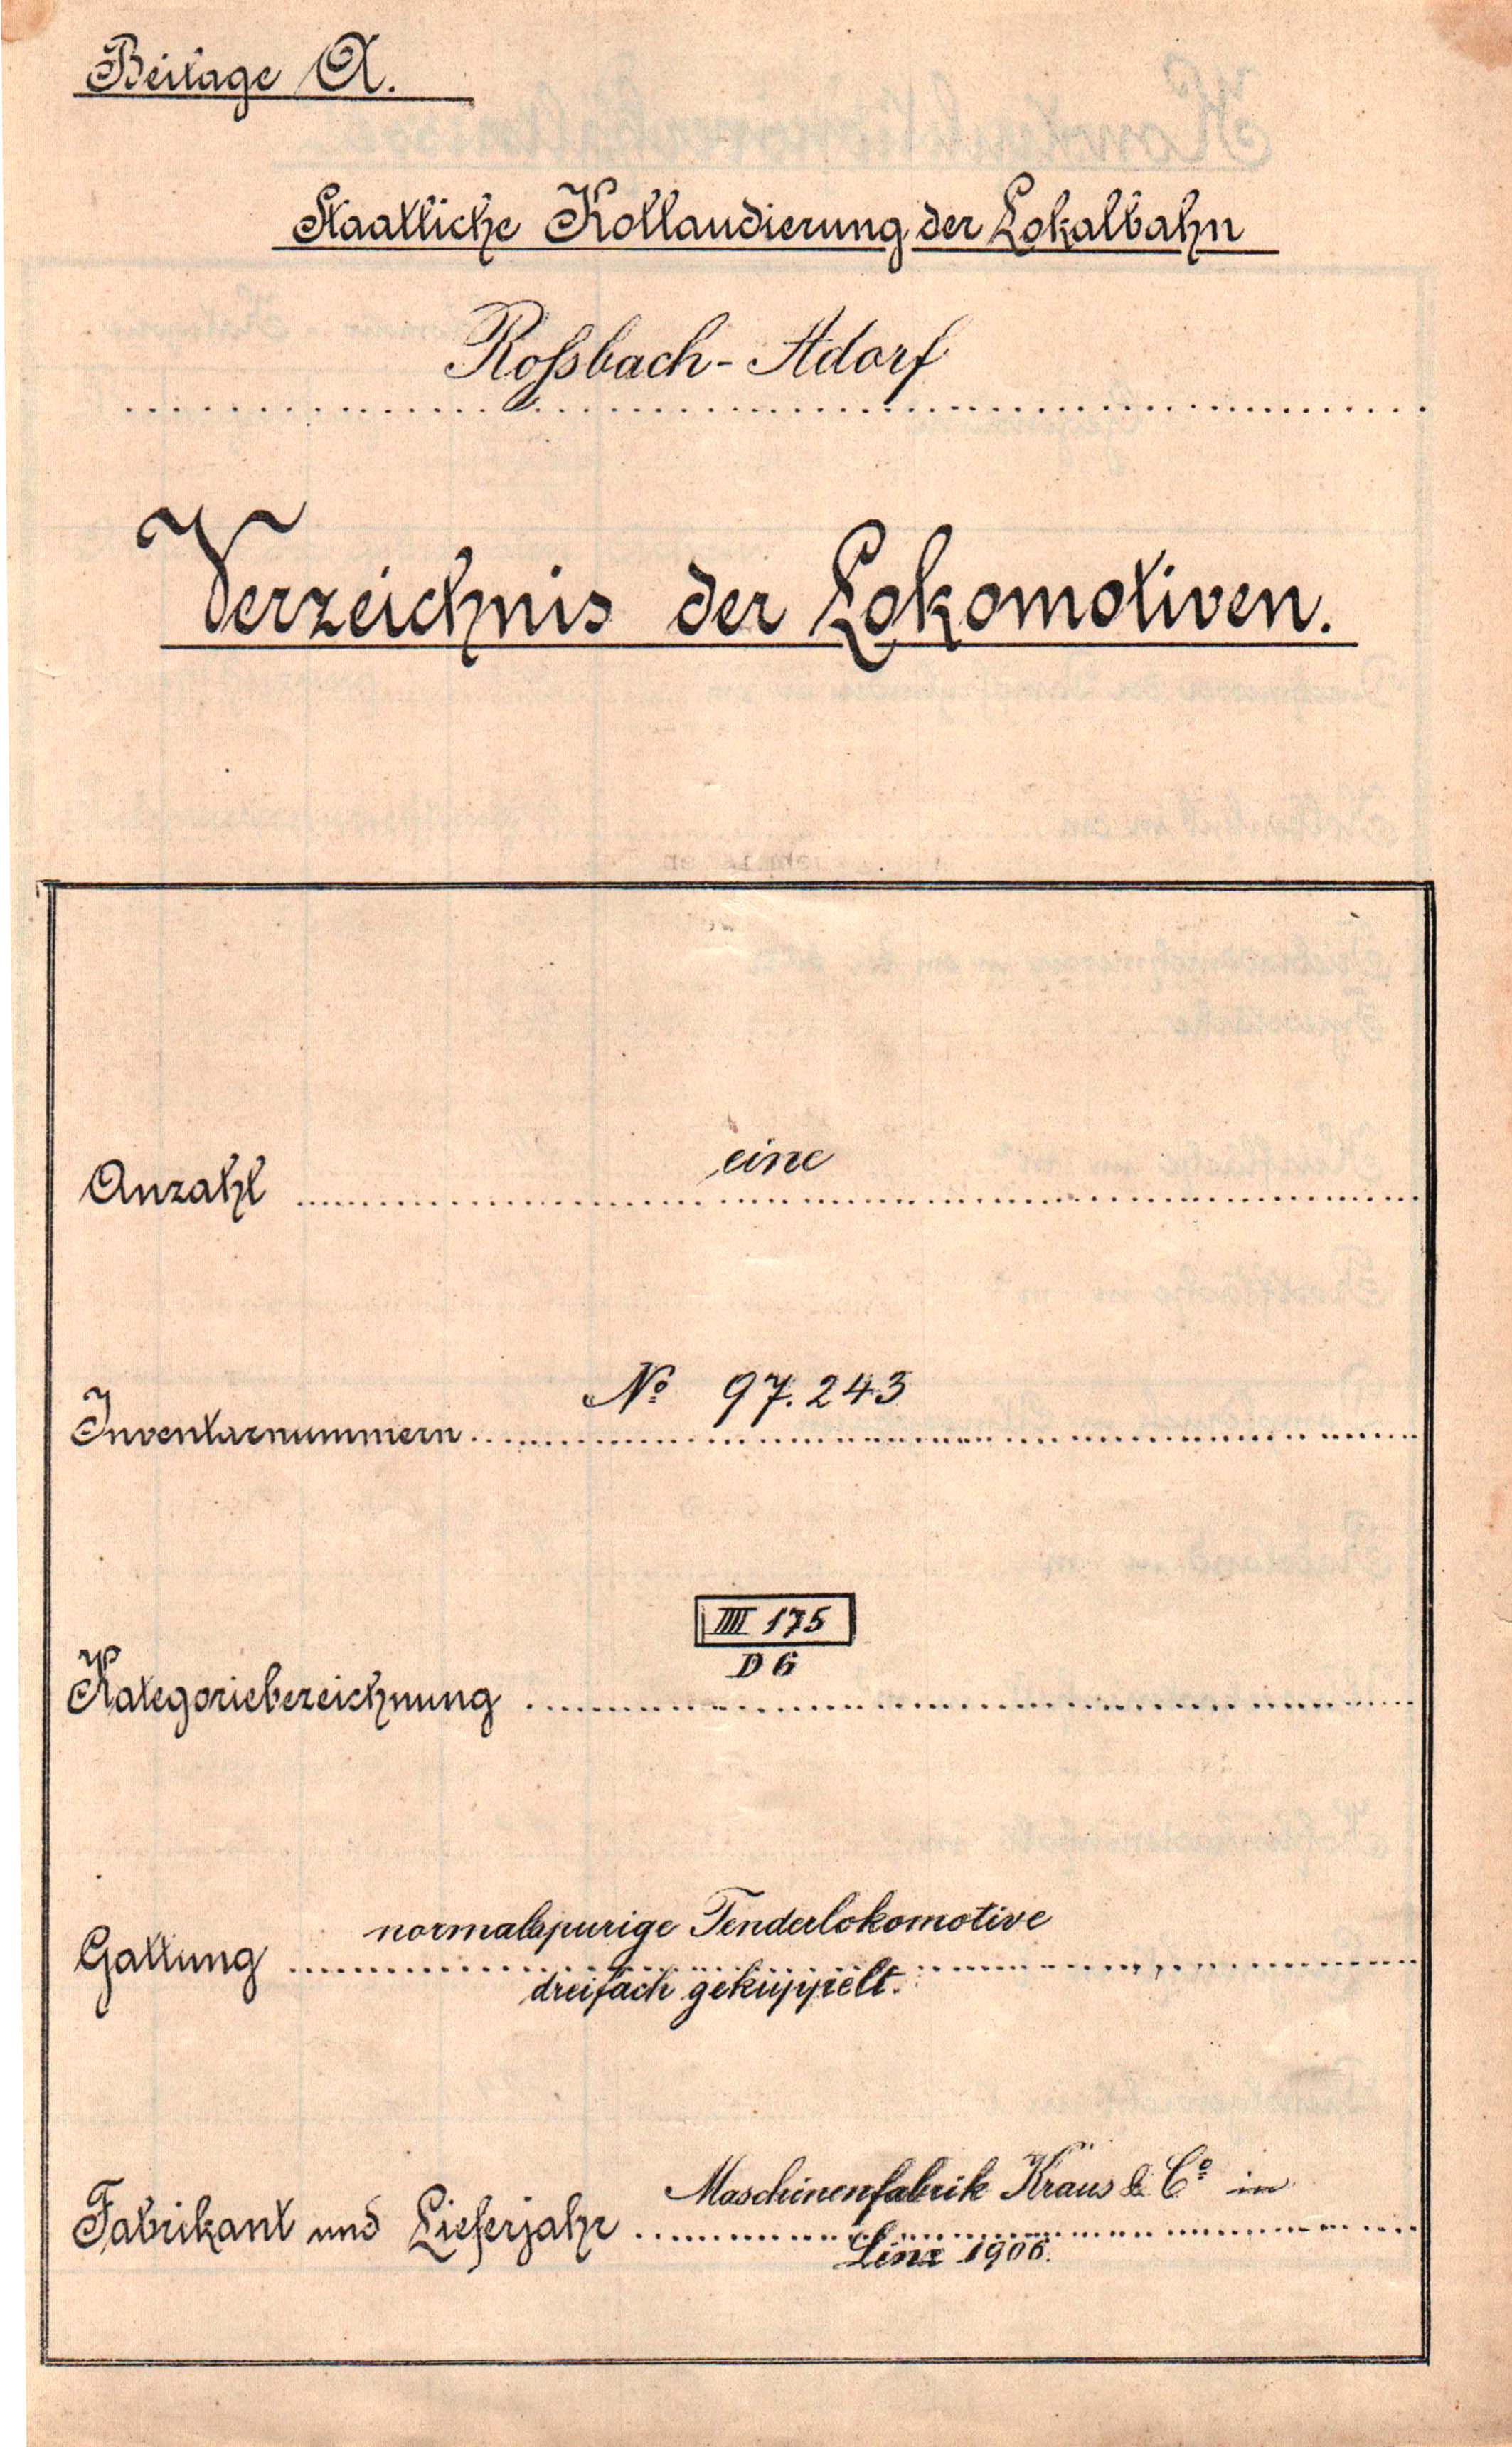 Beilage A.
Staatliche Kollaudierung der Lokalbahn
Roßbach - Adorf
Verzeichnis der Lokomotiven.
Anzahl eine
Inventarnummern No 97.243
Kategoriebezeichnung IIII 175
D 6
Gattung normalspurige Tenderlokomotive
dreifach gekuppelt.
Fabrikant und Lieferjahr Maschinenfabrik Kraus & Co in
Linz 1906.